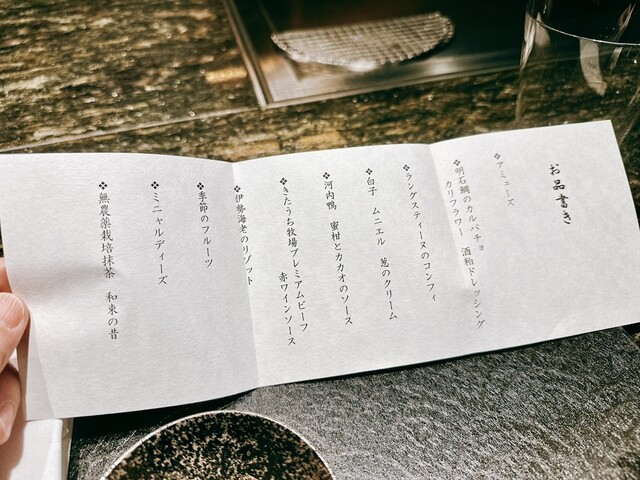 お品書き
❖アミューズ
❖明石鯛のカルパチョ
カリフラワー 酒粕ドレッシング
❖ラングスティーヌのコンフィ
❖白子 ムニエル 葱のクリーム
❖河内鴨 蜜柑とカカオのソース
❖きたうち牧場プレミアムビーフ
赤ワインソース
❖伊勢海老のリゾット
❖季節のフルーツ
❖ミニャルディーズ
❖無農薬栽培抹茶 和束の昔